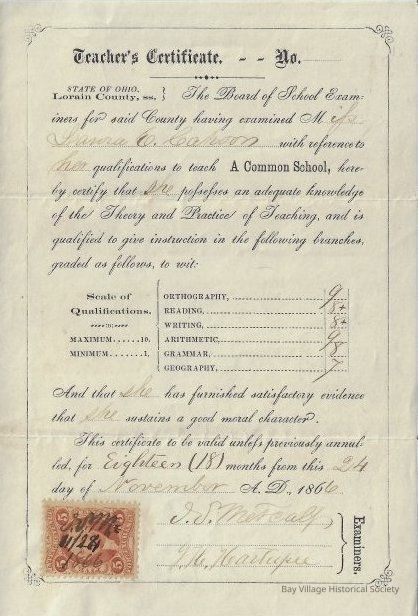 Teacher's Certificate. - - No.
STATE OF OHIO,
Lorain County, ss.
The Board of School Exam-
iners for said County having examined Miss
C. with reference to
her qualifications to teach A Common School, here-
by certify that she possesses an adequate knowledge
of the Theory and Practice of Teaching, and is
qualified to give instruction in the following branches,
graded as follows, to wit:
Scale of
Qualifications.
MAXIMUM......10.
MINIMUM......1.
ORTHOGRAPHY, 9
READING, 8+
WRITING, 8+
ARITHMETIC, 9
GRAMMAR, 8
GEOGRAPHY, 7
And that she has furnished satisfactory evidence
that she sustains a good moral character.
This certificate to be valid unless previously annul-
led, for Eighteen (18) months from this 24
day of November A. D., 1866
Examiners.
Bay Village Historical Society